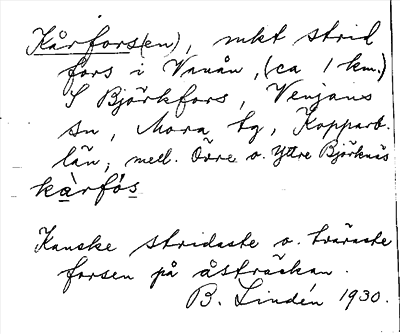 Kårfors(en), mkt strid
fors i Vanån, (ca 1 km.)
S Björkfors, Venjans
sn, Mora tg, Kopparb.
län; mell. Övre o. Yttre Björknäs
kàrfós
Kanske stridaste o. tväraste
forsen på åsträckan.
B. Lindén 1930.